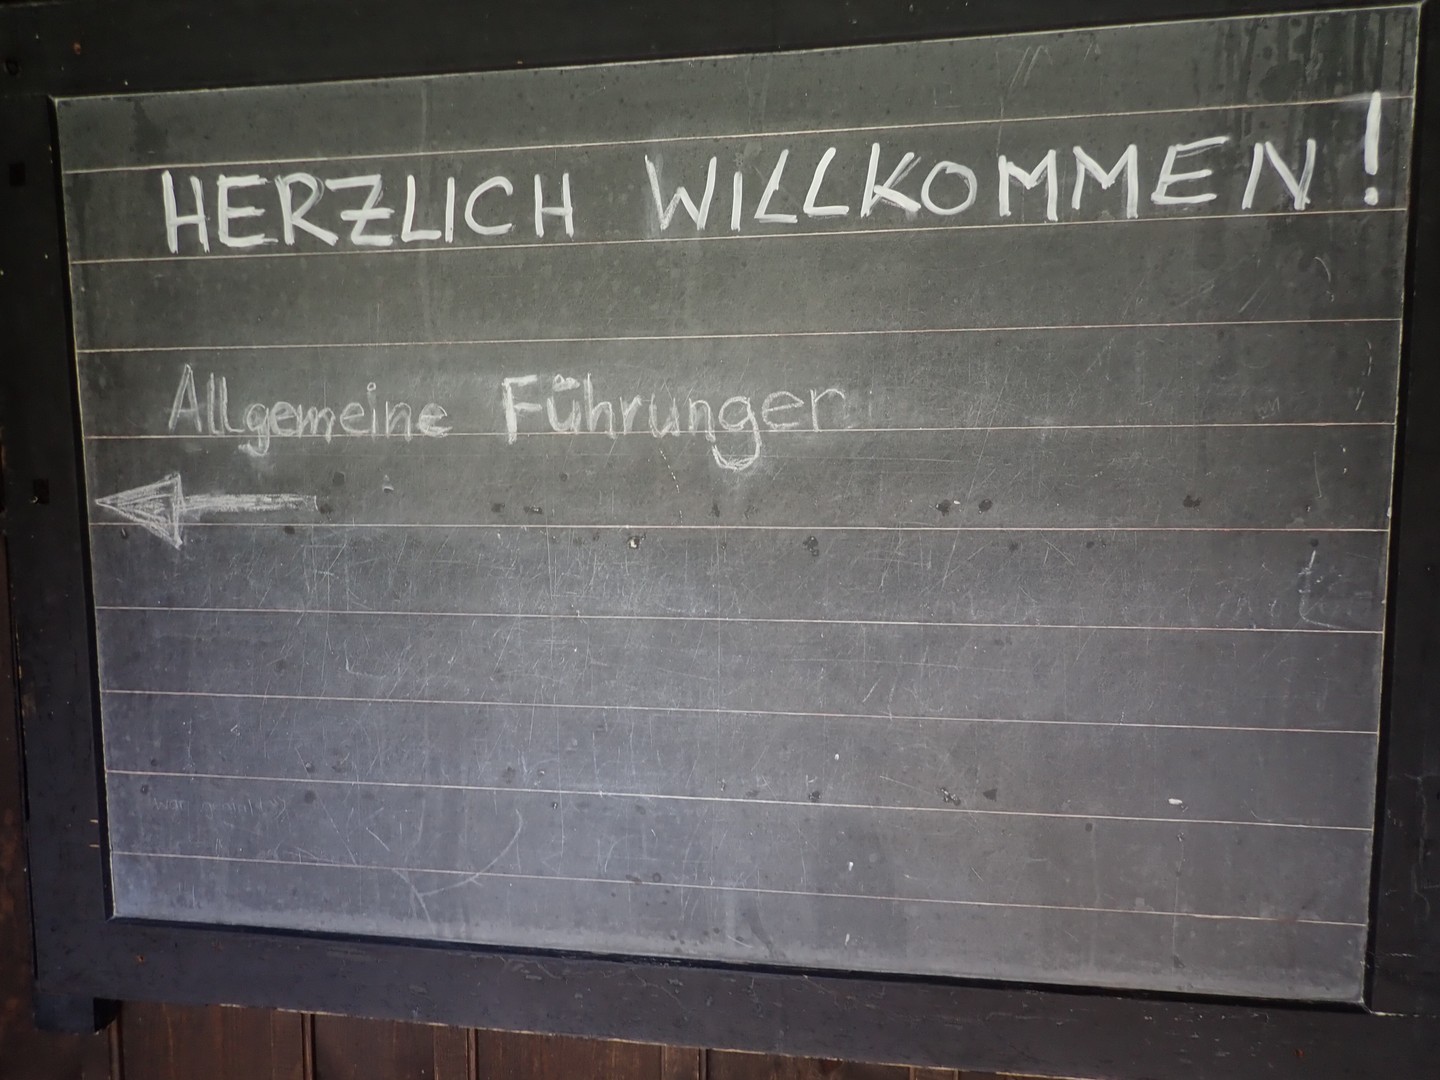 HERZLICH WILLKOMMEN!
Allgemeine Führungen